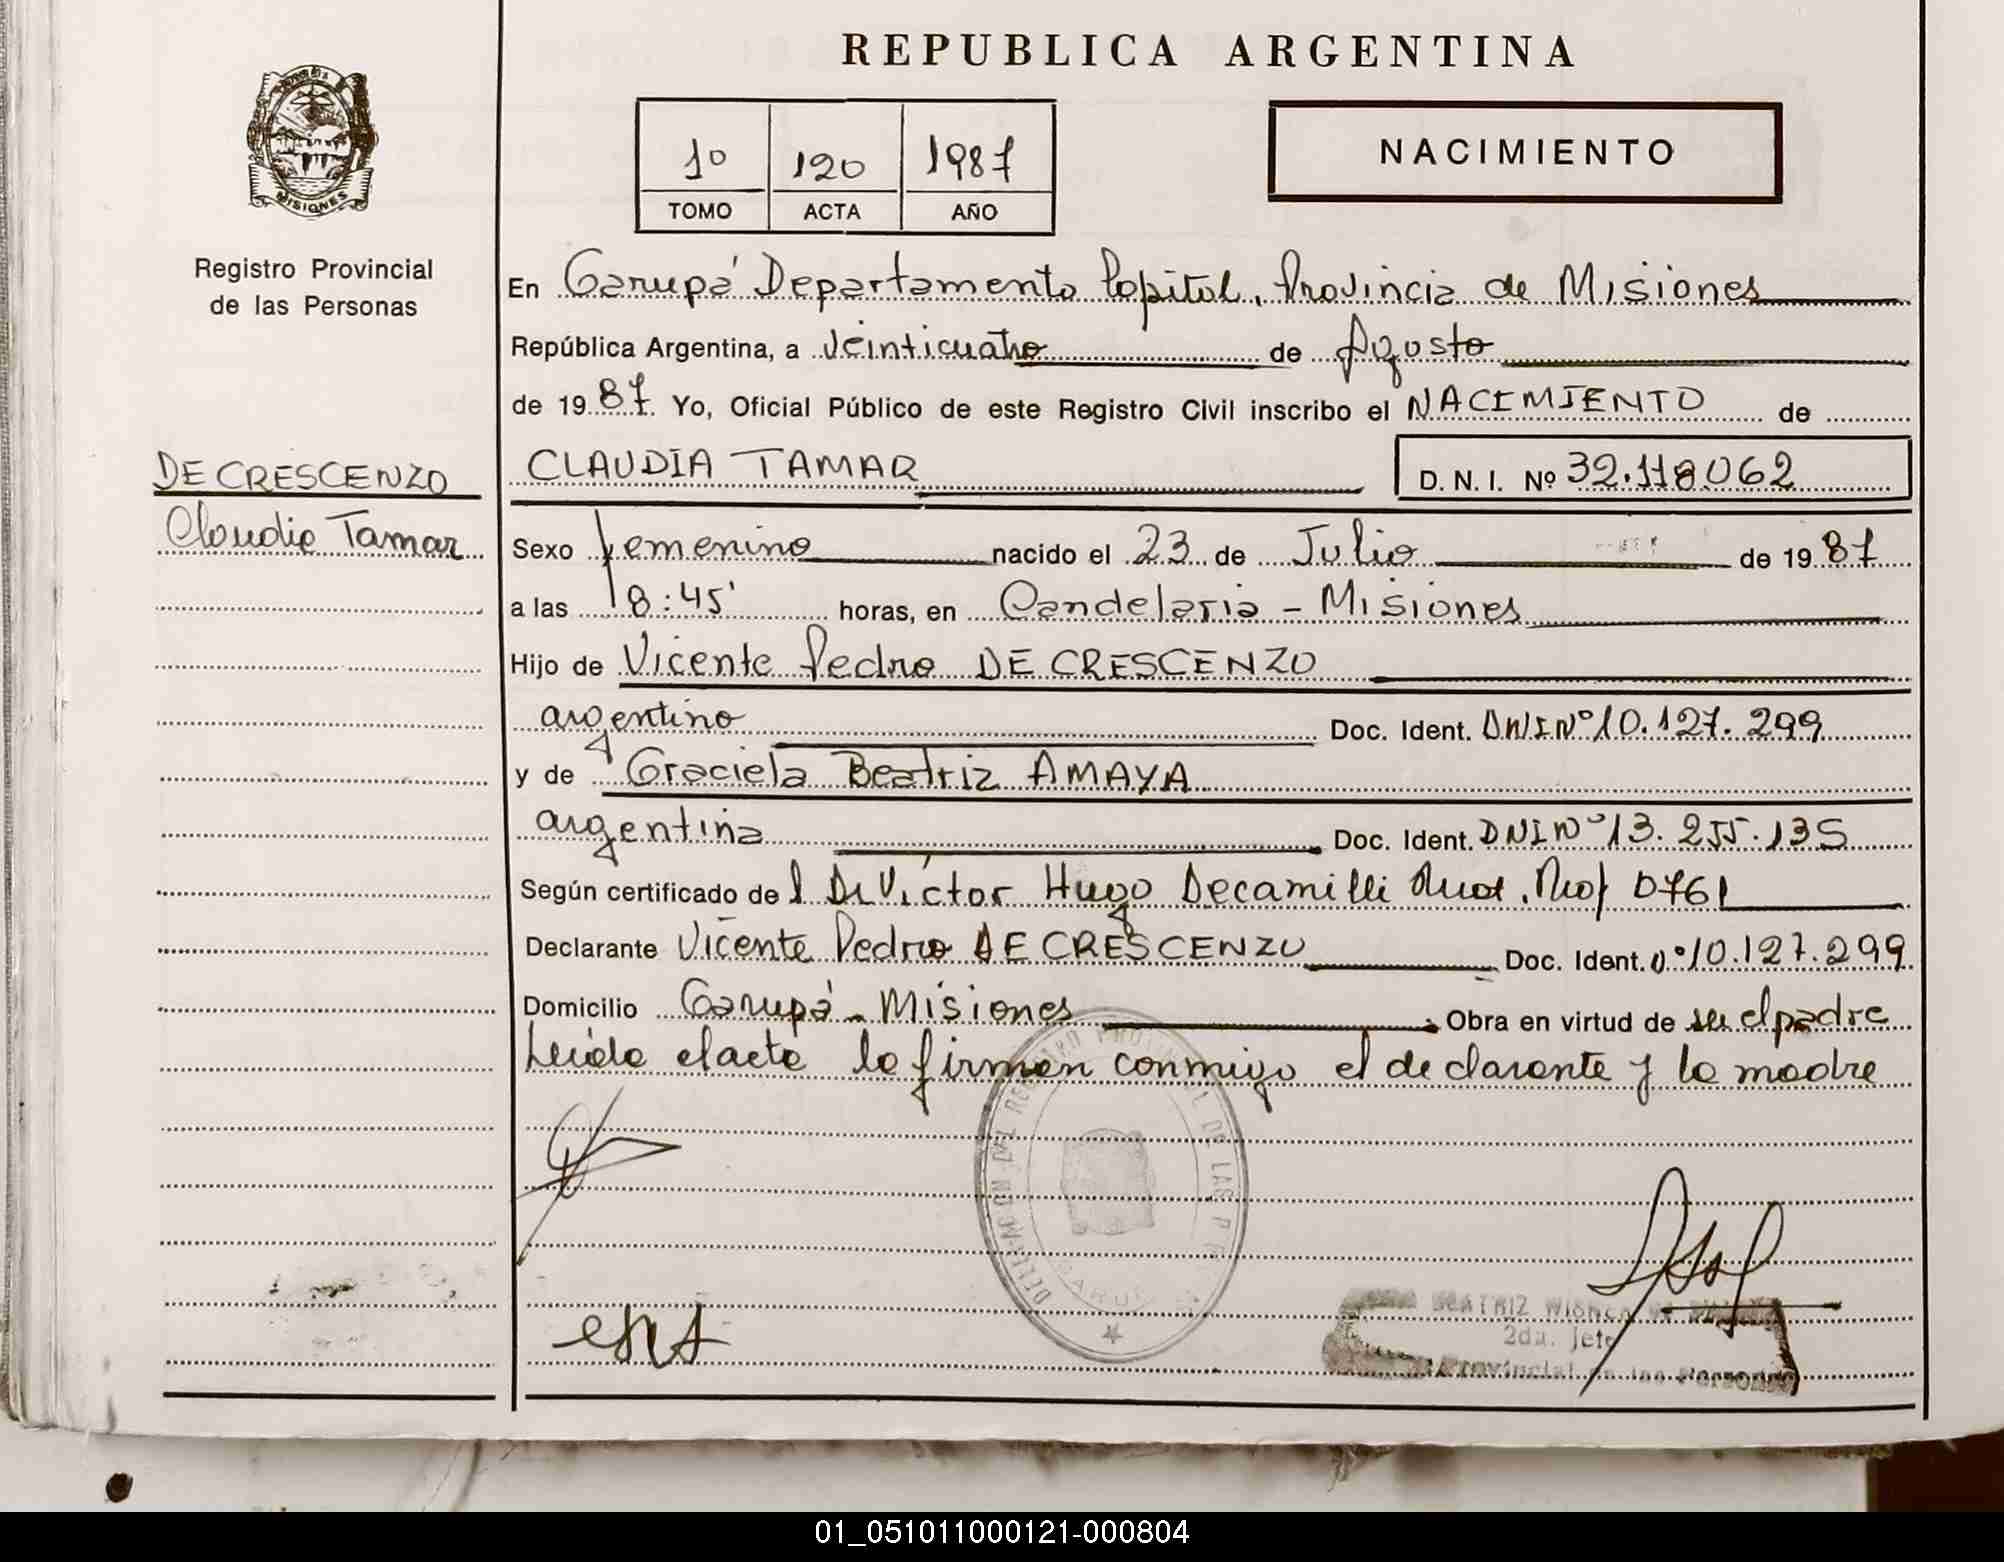 REPUBLICA ARGENTINA
MISIONES
Registro Provincial
de las Personas
10 120 1987
TOMO ACTA AÑO
NACIMIENTO
En Garupá Departamento Capital, Provincia de Misiones
República Argentina, a veinticuatro de Agosto
de 1987 Yo, Oficial Público de este Registro Civil inscribo el NACIMIENTO de
DE CRESCENZO
Claudia Tamar
CLAUDIA TAMAR D. N. I. Nº 32.118.062
Sexo femenino nacido el 23 de Julio de 1987
a las 18:45' horas, en Candelaria - Misiones
Hijo de Vicente Pedro DE CRESCENZO
argentino Doc. Ident. DNI Nº 10.127.299
y de Graciela Beatriz AMAYA
argentina Doc. Ident. DNI Nº 13.255.135
Según certificado de l Dr Víctor Hugo Decamilli Prof 0761
Declarante Vicente Pedro DE CRESCENZO Doc. Ident. nº 10.127.299
Domicilio Garupá - Misiones Obra en virtud de ser el padre
Leída el acta la firman conmigo el declarante y la madre
BEATRIZ
2da. Jefe
Provincial de las Personas
01_051011000121-000804